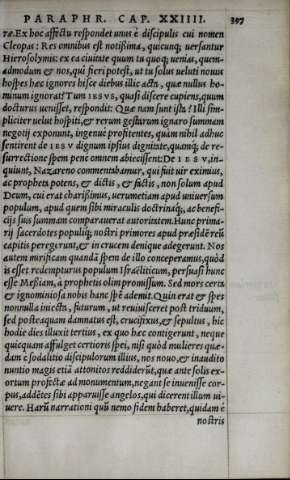 PARAPHR. CAP. XXIIII. 397
ræ. Ex hoc affectu respondet unus è discipulis cui nomen
Cleopas: Res omnibus est notissima, quicunq; uersantur
Hierosolymis: ex ea ciuitate quum tu quoq; uenias, quem-
admodum & nos, qui fieri potest, ut tu solus ueluti nouus
hospes hæc ignores hisce diebus illic acta, quæ nullus ho-
minum ignorat? Tum IESVS, quasi discere cupiens, quum
docturus uenisset, respondit: Quæ nam sunt ista? Illi sim-
pliciter uelut hospiti, & rerum gestarum ignaro summam
negotij exponunt, ingenuè profitentes, quàm nihil adhuc
sentirent de IESV dignum ipsius dignitate, quamq; de re-
surrectione spem penè omnem abiecissent: De IESV, in-
quiunt, Nazareno commentabamur, qui fuit uir eximius,
ac propheta potens, & dictis, & factis, non solum apud
Deum, cui erat charissimus, uerumetiam apud uniuersum
populum, apud quem sibi miraculis doctrinaq;, ac benefi-
cijs suis summam comparauerat autoritatem. Hunc prima-
rij sacerdotes populiq; nostri primores apud præsidē reū
capitis peregerunt, & in crucem denique adegerunt. Nos
autem mirificam quandā spem de illo conceperamus, quòd
is esset redempturus populum Israëliticum, persuasi hunc
esse Messiam, à prophetis olim promissum. Sed mors certa
& ignominiosa nobis hanc spē ademit. Quin erat & spes
nonnulla iniecta, futurum, ut reuiuisceret post triduum,
sed postea quam damnatus est, crucifixus, & sepultus, hic
hodie dies illuxit tertius, ex quo hæc contigerunt, neque
quicquam affulget certioris spei, nisi quòd mulieres quæ-
dam è sodalitio discipulorum illius, nos nouo, & inaudito
nuntio magis etiā attonitos reddiderūt, quæ ante solis ex-
ortum profectæ ad monumentum, negant se inuenisse cor-
pus, addētes sibi apparuisse angelos, qui dicerent illum ui-
uere. Harū narrationi quū nemo fidem haberet, quidam è
nostris